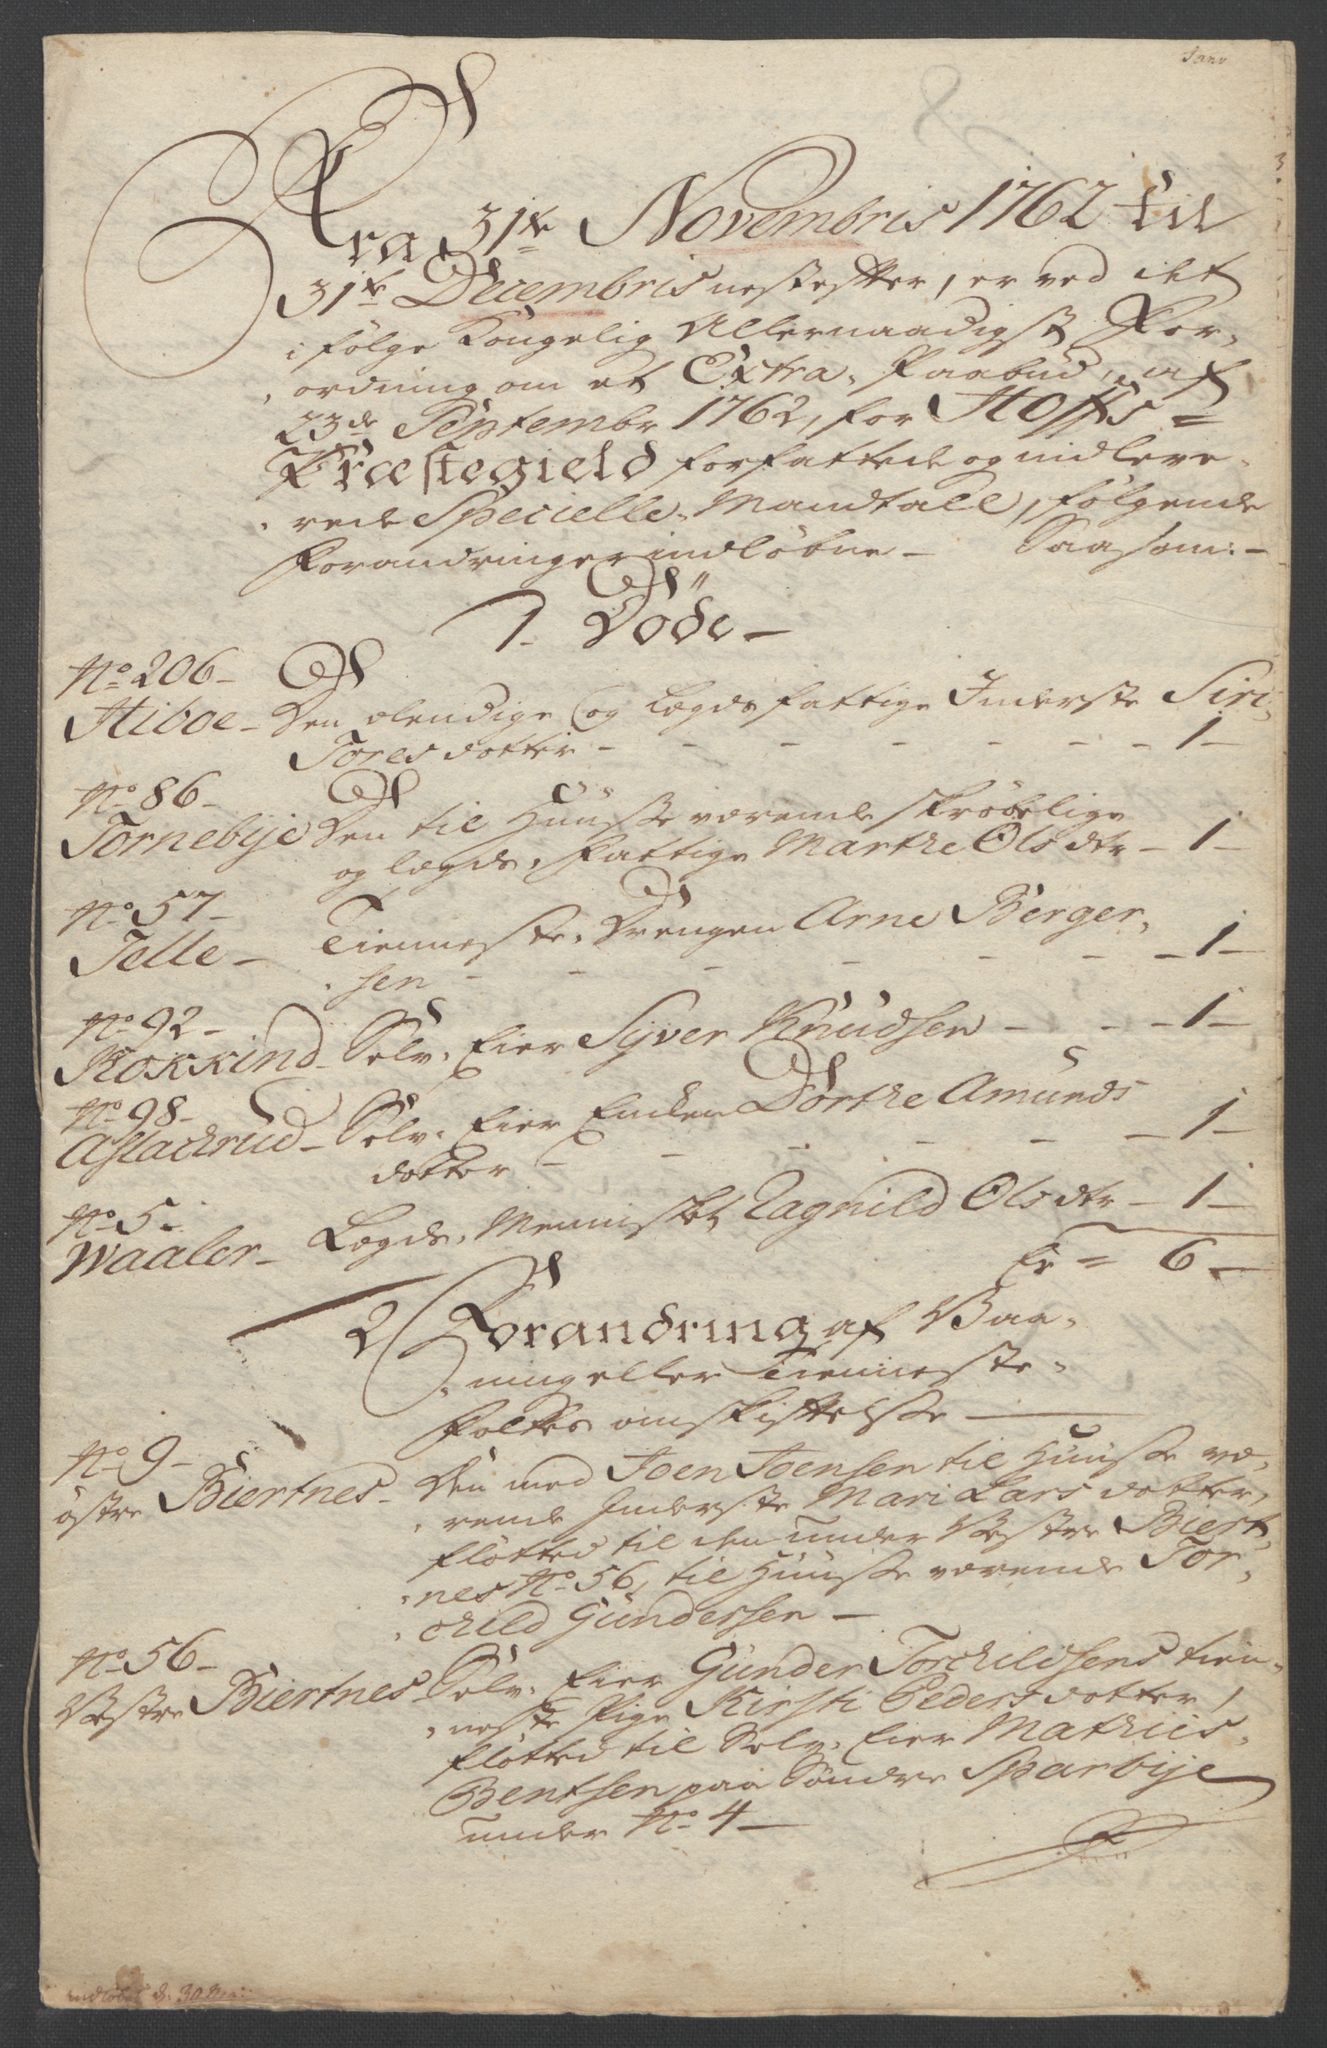 Fra 31te Novembris 1762 til
31te Decembris nestefter, er ved det
i følge Kongelig Allernaadigst For-
ordning om et Extra-Paabud, af
23de Septembr 1762, for Hoffs-
Præstegield forfattede og indleve-
rede Specielle Mandtall, følgende
Forandringer indløbne - Saasom:-
1. Døde -
No 206 -
Hiboe - Den elendige og Legds fattige Inderste Siri
Tores dotter - - - - - - - 1 -
No 86 -
Tornebÿe Den til Huuse værende skrøbelige
og legds-fattige Marthe Olsdtr - 1 -
No 57 -
Telle - Tienneste-Drengen Arne Berger-
sen - - - - - - - 1 -
No 92 -
Kokkind - Selv-Eier Syver Knudsen - - - 1 -
No 98 -
Aslackrud - Selv-Eier Enken Dorthe Amunds
dotter - - - - - - 1 -
No 5.
Waaler - Legds-Mennisket Ragnild Olsdtr - 1 -
Er = 6 -
2 Forandring af Baa-
ning eller Tienneste-
Folkes omskiftelse -
No 9 -
østre Biertnes - Den med Joen Joensen til Huuse væ-
rende Inderste Mari Lars dotter,
flötted til den under Vestre Biert-
nes No 56, til Huuse værende Tor-
child Gundersen -
No 56 -
Vestre Biertnes - Selv-Eier Gunder Torchildsens tien-
neste Pige Kirsti Peders dotter,
flötted til Selv-Eier Mathiis
Bentsen paa Søndre Sparbÿe
under No 4 -
indløbet d. 30